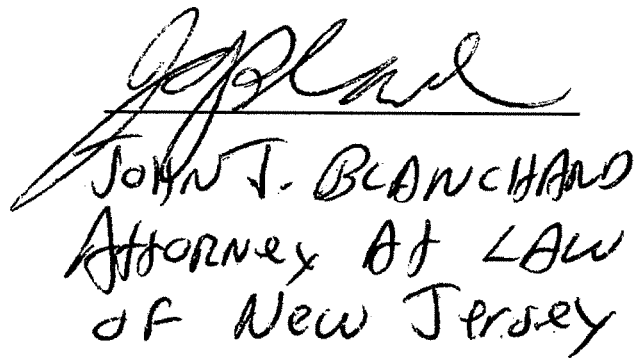 JOHN J. BLANCHARD
Attorney At LAW
of New Jersey